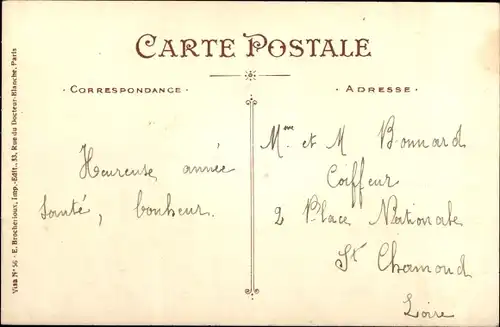 CARTE POSTALE
· CORRESPONDANCE ·
· ADRESSE ·
Heureuse année
santé, bonheur.
Mme et M Bonnard
Coiffeur
2 Place Nationale
St Chamond
Loire
Visa N° 56 - E. Brocherioux, Imp.-Édit., 33, Rue du Docteur-Blanche, Paris